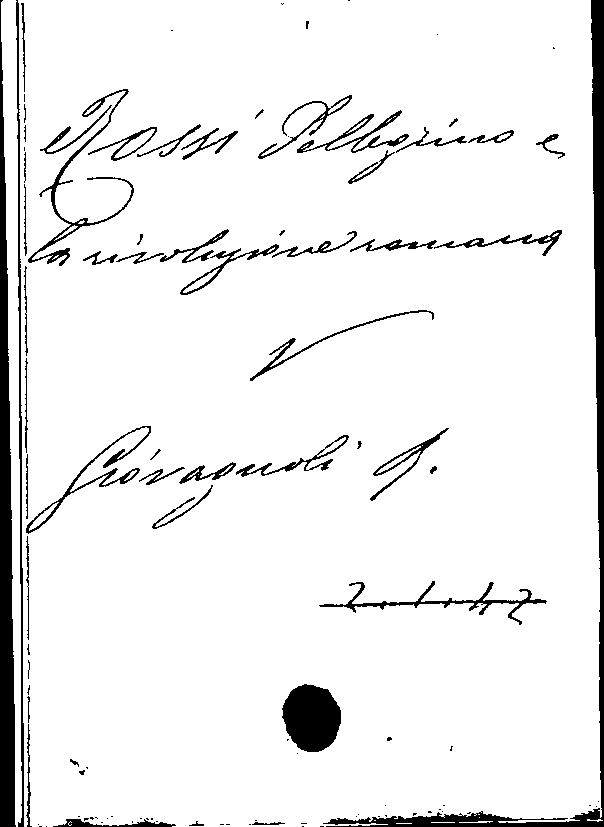 Rossi Pellegrino e
la rivoluzione romana
V
Giovagnoli R.
2.1.42